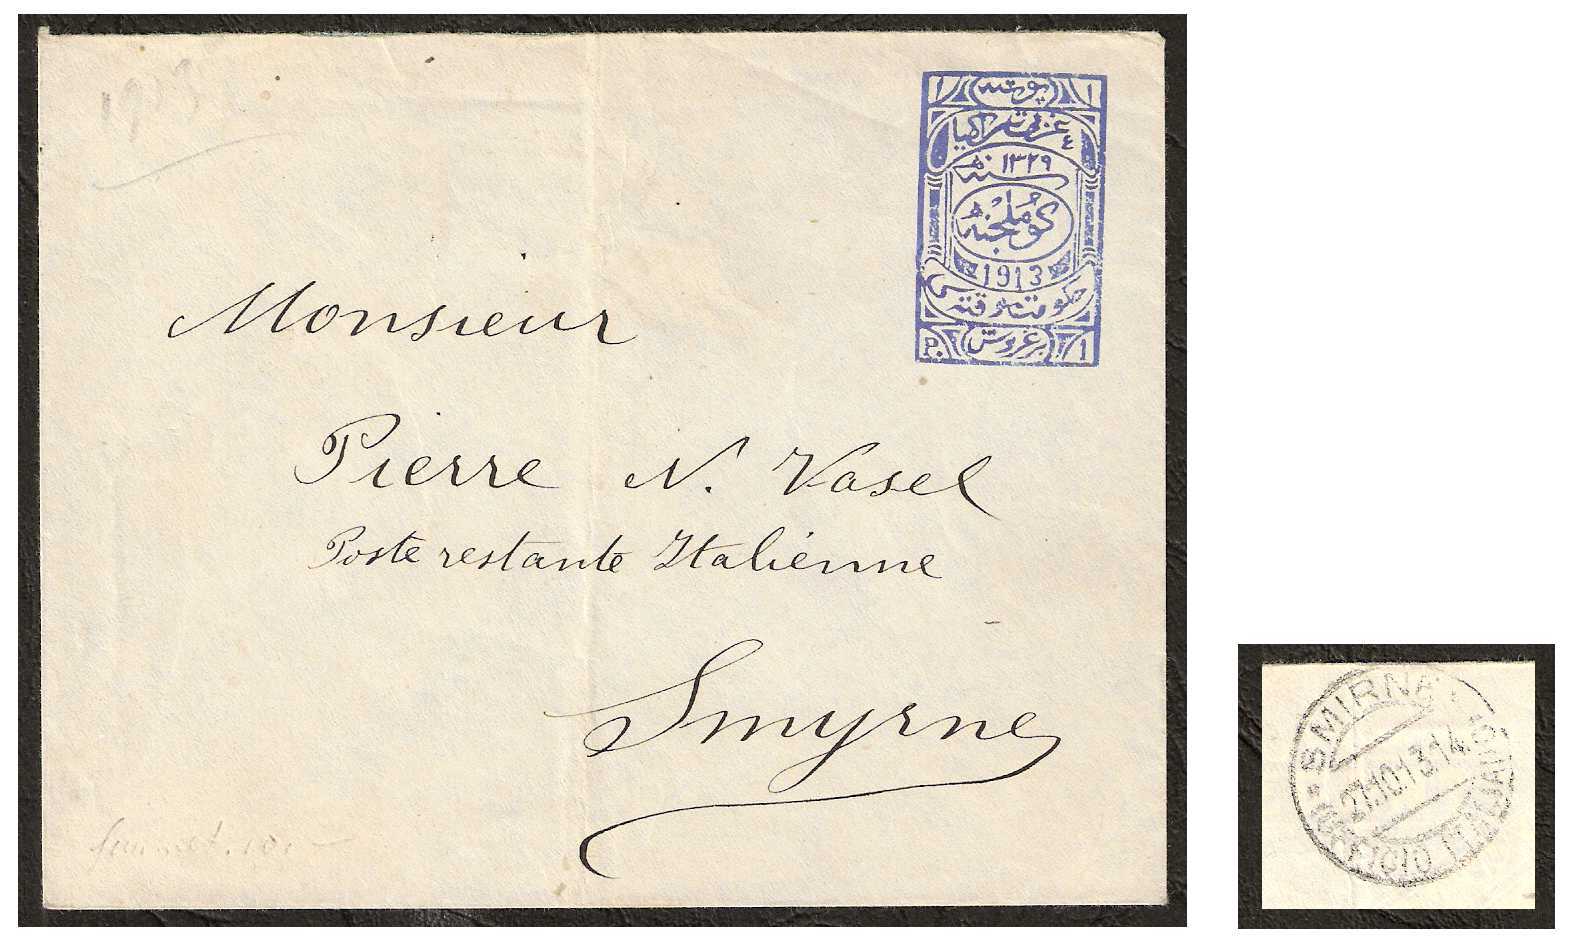 1913
١ پوسته ١
غربی تراکیا
سنه ١٣٢٩
كوملجنه
1913
حكومت موقته سی
P. بر غروش 1
Monsieur
Pierre N. Vasel
Poste restante Italiénne
Smyrne
SMIRNE
27.10.13.14
UFFICIO ITALIANO